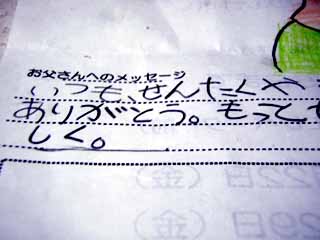 お父さんへのメッセージ
いつも、せんたくや
ありがとう。もって
しく。
22日(金)
29日(金)